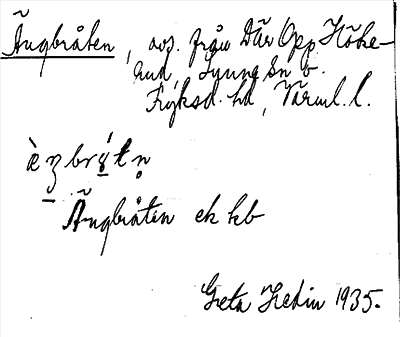 Ängbråten, avs. från Där Opp Höke-
rud, Ljung sn o.
Fryksd. hd, Värml. l.
Ängbråten ek kb
Greta Hedin 1935.